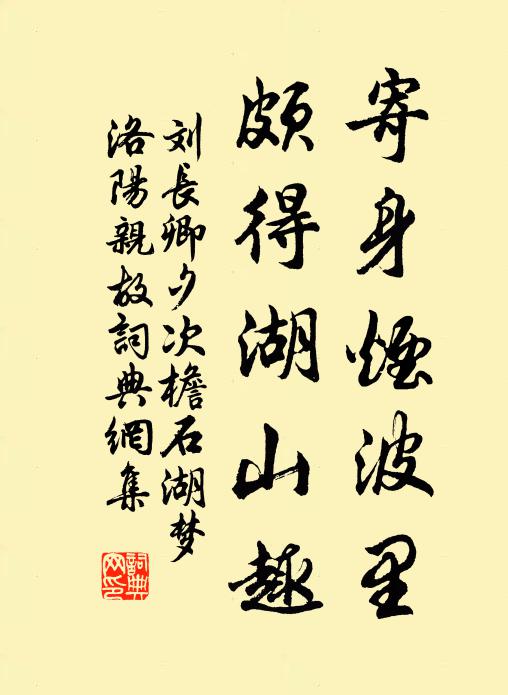 寄身煙波里
頗得湖山趣
刘長卿夕次檐石湖梦
洛陽親故詞典網集
詞典网印